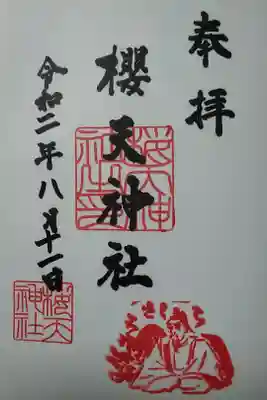 奉拝
櫻天神社
令和二年八月十一日
桜天神社印
桜天神社